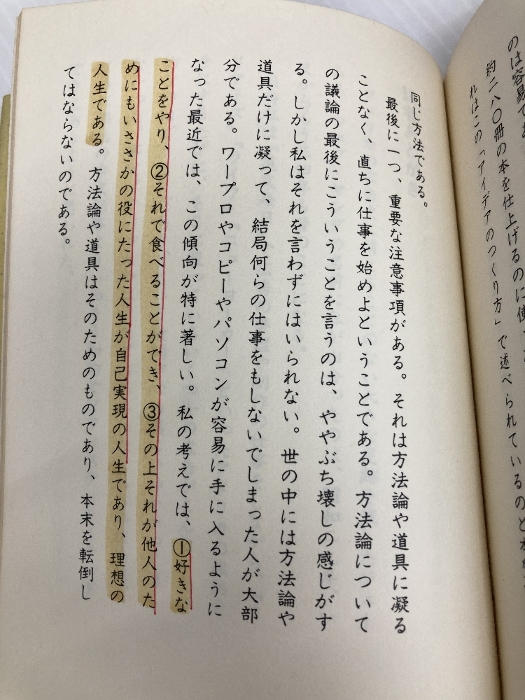 のは容易で
約二八〇冊の本を仕上げるのに使
れはこの「アイデアのつくり方」で述べられているのと
同じ方法である。
最後に一つ、重要な注意事項がある。それは方法論や道具に凝る
ことなく、直ちに仕事を始めよということである。方法論について
の議論の最後にこういうことを言うのは、ややぶち壊しの感じがす
る。しかし私はそれを言わずにはいられない。世の中には方法論や
道具だけに凝って、結局何らの仕事をもしないでしまった人が大部
分である。ワープロやコピーやパソコンが容易に手に入るように
なった最近では、この傾向が特に著しい。私の考えでは、①好きな
ことをやり、②それで食べることができ、③その上それが他人のた
めにもいささかの役にたった人生が自己実現の人生であり、理想の
人生である。方法論や道具はそのためのものであり、本末を転倒し
てはならないのである。